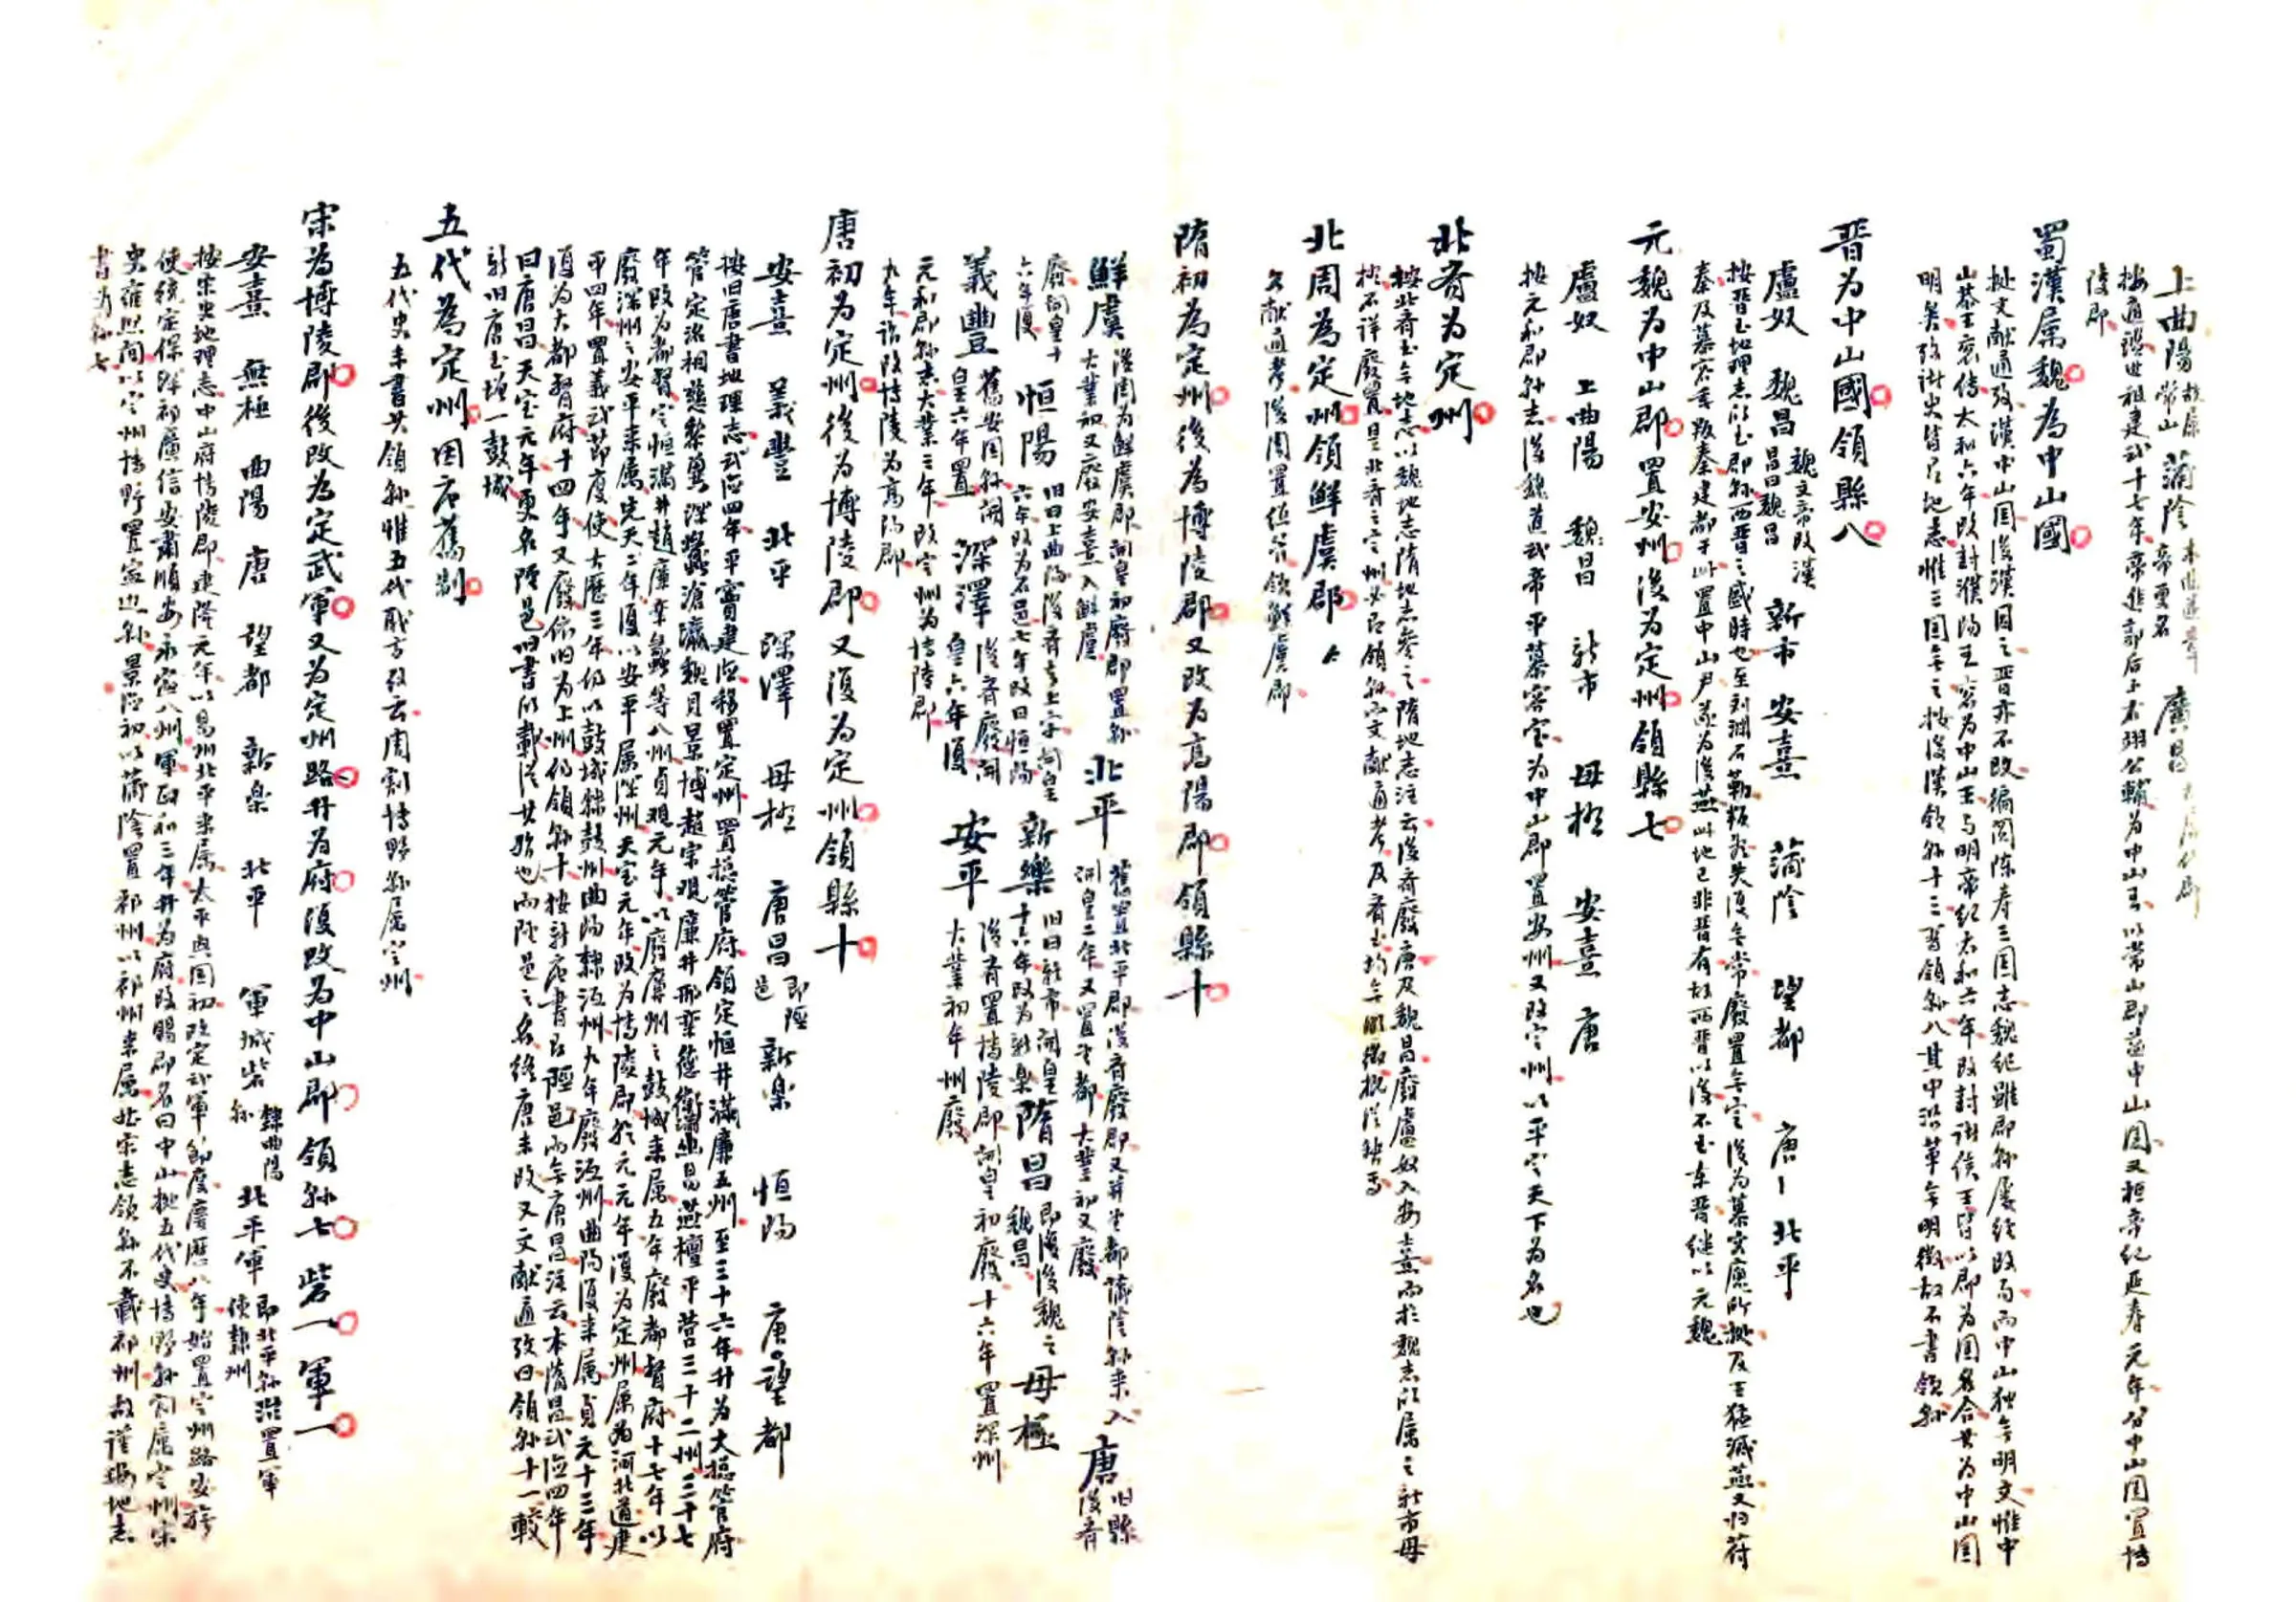 上曲陽 故屬常山 蒲陰 本曲逆章帝更名 廣昌
按通鑑世祖建武十七年帝進郭后子右翊公輔為中山王以常山郡益中山国又桓帝纪延寿元年分中山国置博
陵郡
蜀漢属魏為中山國
按文献通攷漢中山国後漢因之晋亦不改徧閲陈寿三国志魏纪雖郡縣屡经改易而中山独無明文惟中
山恭王衮传大和六年改封濮陽王衮为中山王与明帝纪太和六年改封诸侯王皆以郡为国者合其为中山国
明矣攷諸史皆有地志惟三国無之按後漢領縣十三晋領縣八其中沿革無明徵故不書領縣
晋为中山國領縣八
盧奴 魏昌 魏文帝改漢昌曰魏昌 新市 安熹 蒲陰 望都 唐 北平
按晋书地理志所书郡縣西晋之盛時也至刘渊石勒叛後失復無常廢置無定後为慕容廆所据及王猛滅燕又归苻
秦及慕容垂叛秦建都于此置中山尹遂为後燕此地已非晋有故西晋以後不书东晋继以元魏
元魏为中山郡置安州後为定州領縣七
盧奴 上曲陽 魏昌 新市 毋极 安熹 唐
按元和郡縣志後魏道武帝平慕容宝为中山郡置安州又改定州以平定天下为名也
北齐为定州
按北齐书無地志以魏地志隋地志参之隋地志注云後齐廢唐及魏昌廢盧奴入安熹而於魏志所属之新市毋
极不详廢置是北齐之定州必有領縣而文献通考及齐书均無徵概從缺焉
北周为定州領鲜虞郡
文献通考後周置總管領鲜虞郡
隋初为定州後为博陵郡又改为高陽郡領縣十
鮮虞 後周为鮮虞郡開皇初廢郡置縣大業初又廢安熹入鮮虞 北平 舊置北平郡後齐廢郡又并望都蒲陰縣来入開皇二年又置望都大業初又廢 唐 旧縣後齐
廢開皇十六年復 恒陽 旧曰上曲陽後齐去上字開皇六年改为石邑七年改曰恒陽 新樂 旧曰新市開皇十六年改为新樂 隋昌 即後魏之魏昌 毋極
義豐 舊安国縣開皇六年置 深澤 後齐廢開皇六年復 安平 後齐置博陵郡開皇初廢十六年置深州大業初年州廢
元和郡縣志大業三年改定州为博陵郡
九年诏改博陵为高陽郡
唐初为定州後为博陵郡又復为定州領縣十
安熹 義豐 北平 深澤 毋极 唐昌 即陘邑 新楽 恒陽 唐 望都
按旧唐書地理志武德四年平竇建德移置定州置總管府領定恒井满廉五州至三十六年升为大總管府
管定洺相慈黎冀深蠡滄瀛魏貝景博趙宗观廉井邢栾德衛满幽易燕檀平营三十二州三十七
年改为都督定恒满井趙廉栾蠡等八州貞观元年以廢廉州之鼓城来属五年廢都督府十七年以
廢深州之安平来属先天二年復以安平属深州天宝元年改为博陵郡乾元元年復为定州属为河北道建
中四年置義武節度使大歷三年仍以鼓城隸鼓州曲陽隸恒州九年廢恒州曲陽復来属貞元十三年
復为大都督府十四年又廢依旧为上州仍領縣十按新唐書有陘邑而無唐昌注云本隋昌武德四年
曰唐昌天宝元年更名陘邑旧書所載從其始也而陘邑之名终唐未改又文献通攷曰領縣十一較
新旧唐书增一鼓城
五代為定州因唐舊制
五代史未書其領縣惟五代職方攷云周割博野縣属定州
宋为博陵郡後改为定武軍又为定州路升为府復改为中山郡領縣七砦一軍一
安熹 無極 曲陽 唐 望都 新楽 北平 軍城砦 隸曲陽縣 北平軍 即北平縣治置軍使隸州
按宋史地理志中山府博陵郡建隆元年以易州北平来属太平兴国初改定武軍節度慶歷八年始置定州路安撫
使统定保深祁廣信安肅順安永寧八州軍政和三年升为府改賜郡名曰中山据五代史博野縣割属定州宋
史雍熙間以定州博野置寧边縣景德初以蒲陰置祁州以祁州来属於宋志領縣不載祁州故謹遵地志
書为縣七